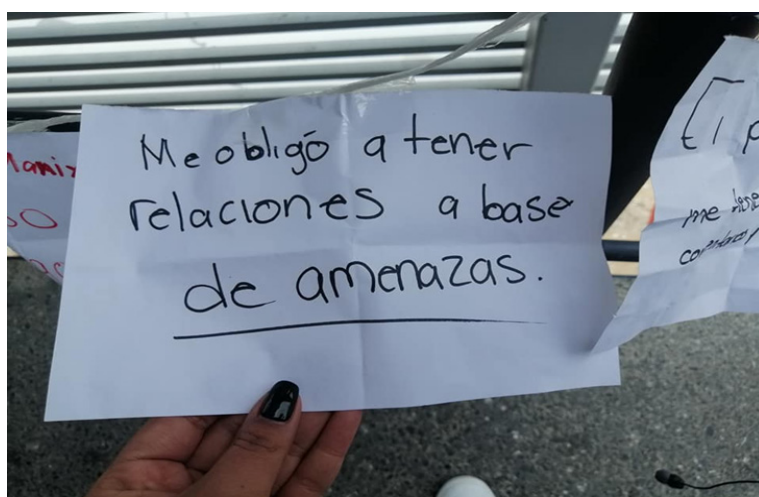 Me obligó a tener
relaciones a base
de amenazas.
me